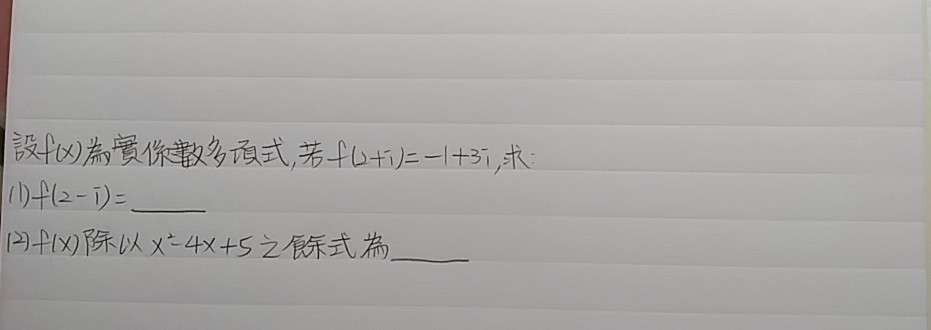 設f(x)為實係數多項式,若f(2+i)=-1+3i,求:
(1)f(2-i)=____
(2)f(x)除以x²-4x+5之餘式為____